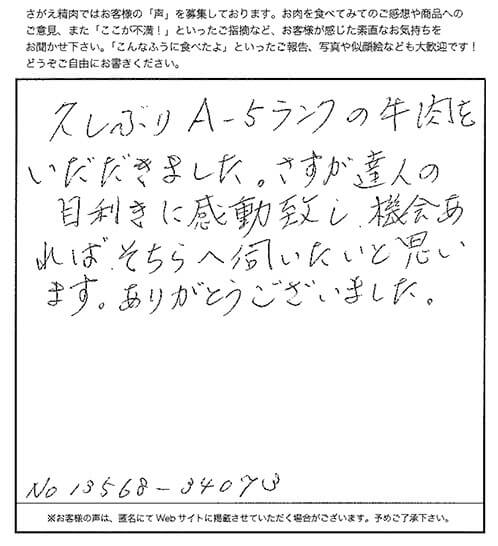 さがえ精肉ではお客様の「声」を募集しております。お肉を食べてみてのご感想や商品への
ご意見、また「ここが不満！」といったご指摘など、お客様が感じた素直なお気持ちを
お聞かせ下さい。「こんなふうに食べたよ」といったご報告、写真や似顔絵なども大歓迎です！
どうぞご自由にお書きください。
久しぶりA-5ランクの牛肉を
いただきました。さすが達人の
目利きに感動致し、機会あ
れば、そちらへ伺いたいと思い
ます。ありがとうございました。
No 13568-34073
※お客様の声は、匿名にてWebサイトに掲載させていただく場合がございます。予めご了承下さい。